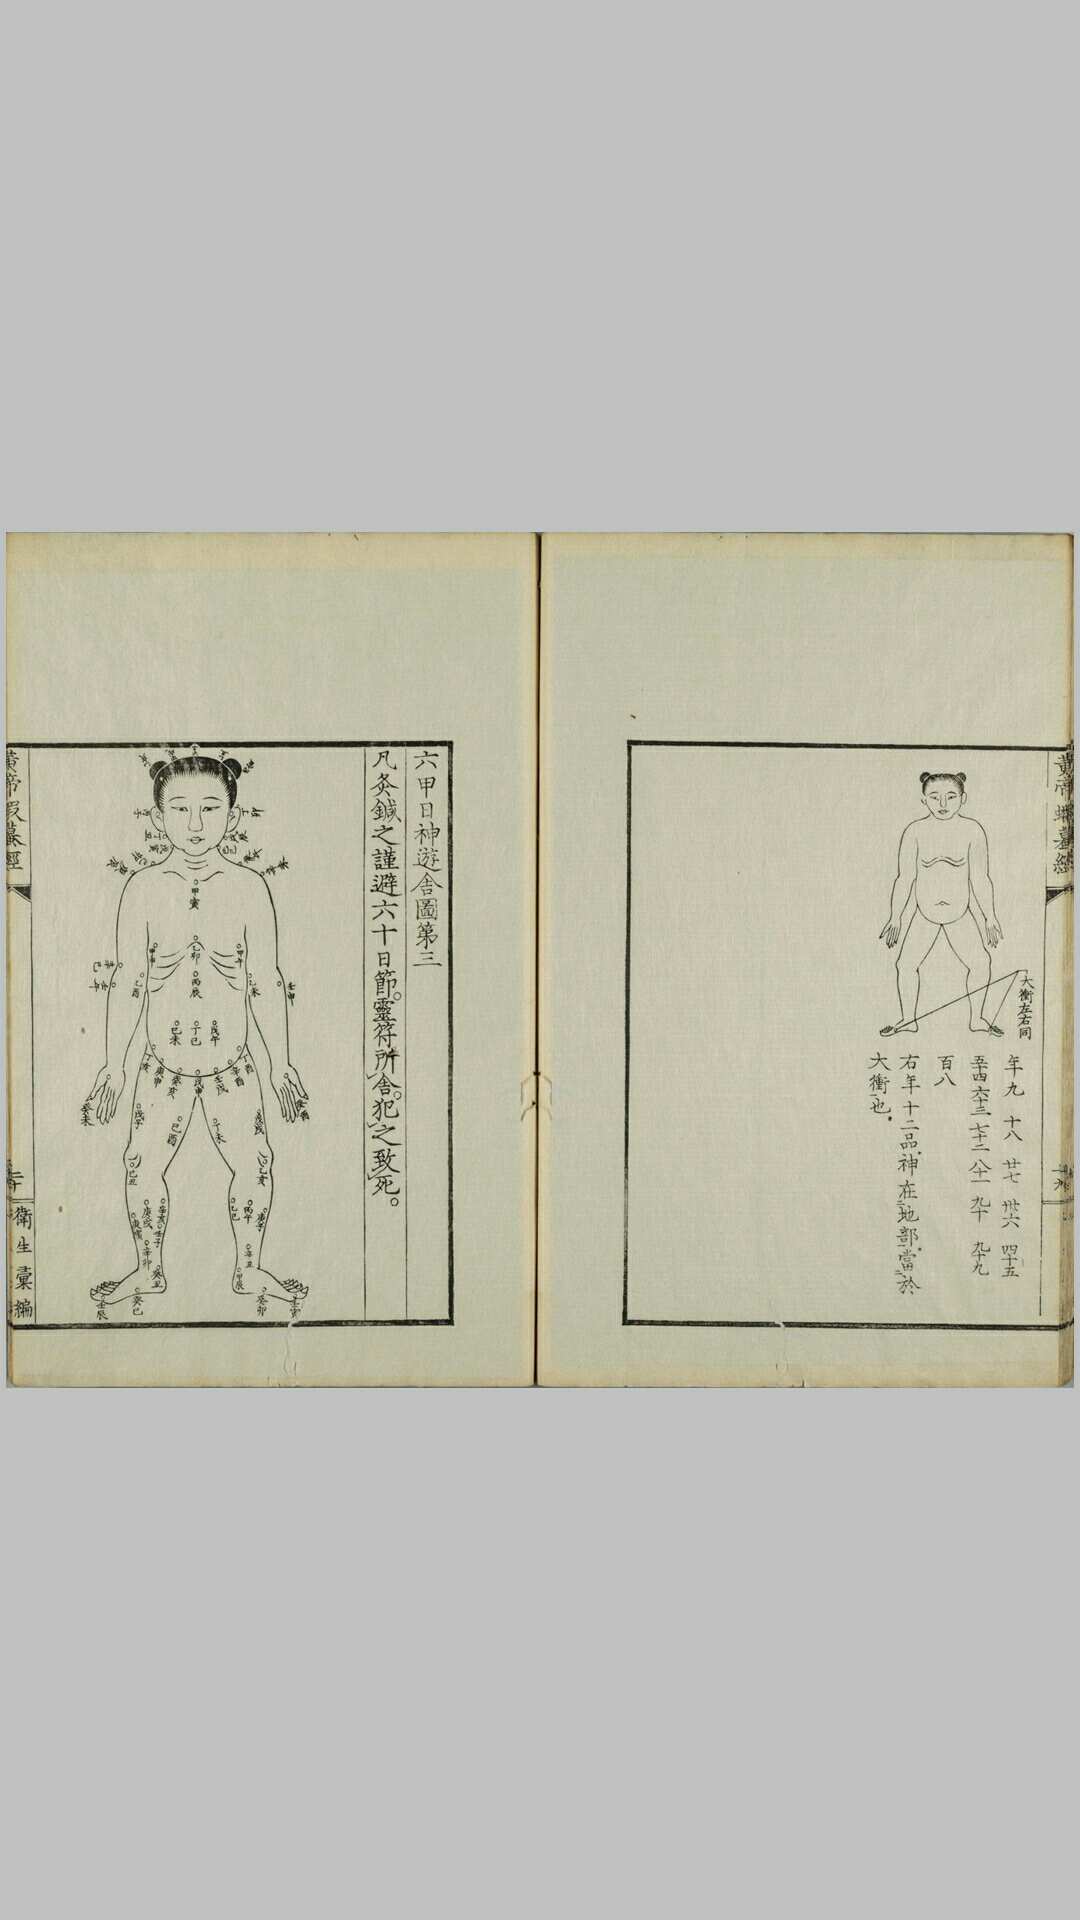 黄帝蝦蟇經
大衝左右同
年九 十八 廿七 卅六 四十五
五十四 六十三 七十二 八十一 九十 九十九
百八
右年十二品神在地部當於
大衝也
六甲日神遊舍圖第三
凡灸鍼之謹避六十日節。靈符所舍。犯之致死。
甲寅
乙卯
丙辰
丁巳
戊午
己未
甲午
乙酉
乙未
辛巳
壬午
壬申
丁亥
庚申
癸亥
戊申
壬戌
辛酉
丁酉
癸未
癸酉
戊子
己酉
丁未
戊戌
己丑
己亥
庚戌
辛亥
庚寅
壬子
辛卯
癸丑
乙巳
丙午
庚子
辛丑
甲辰
壬辰
癸巳
癸卯
壬寅
黄帝蝦蟇經
二十
衛生彙編